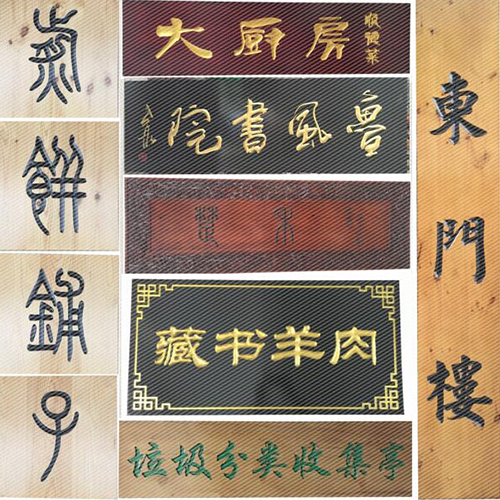 餅鋪子
大厨房
順德菜
風書院
藏书羊肉
垃圾分类收集亭
東門樓